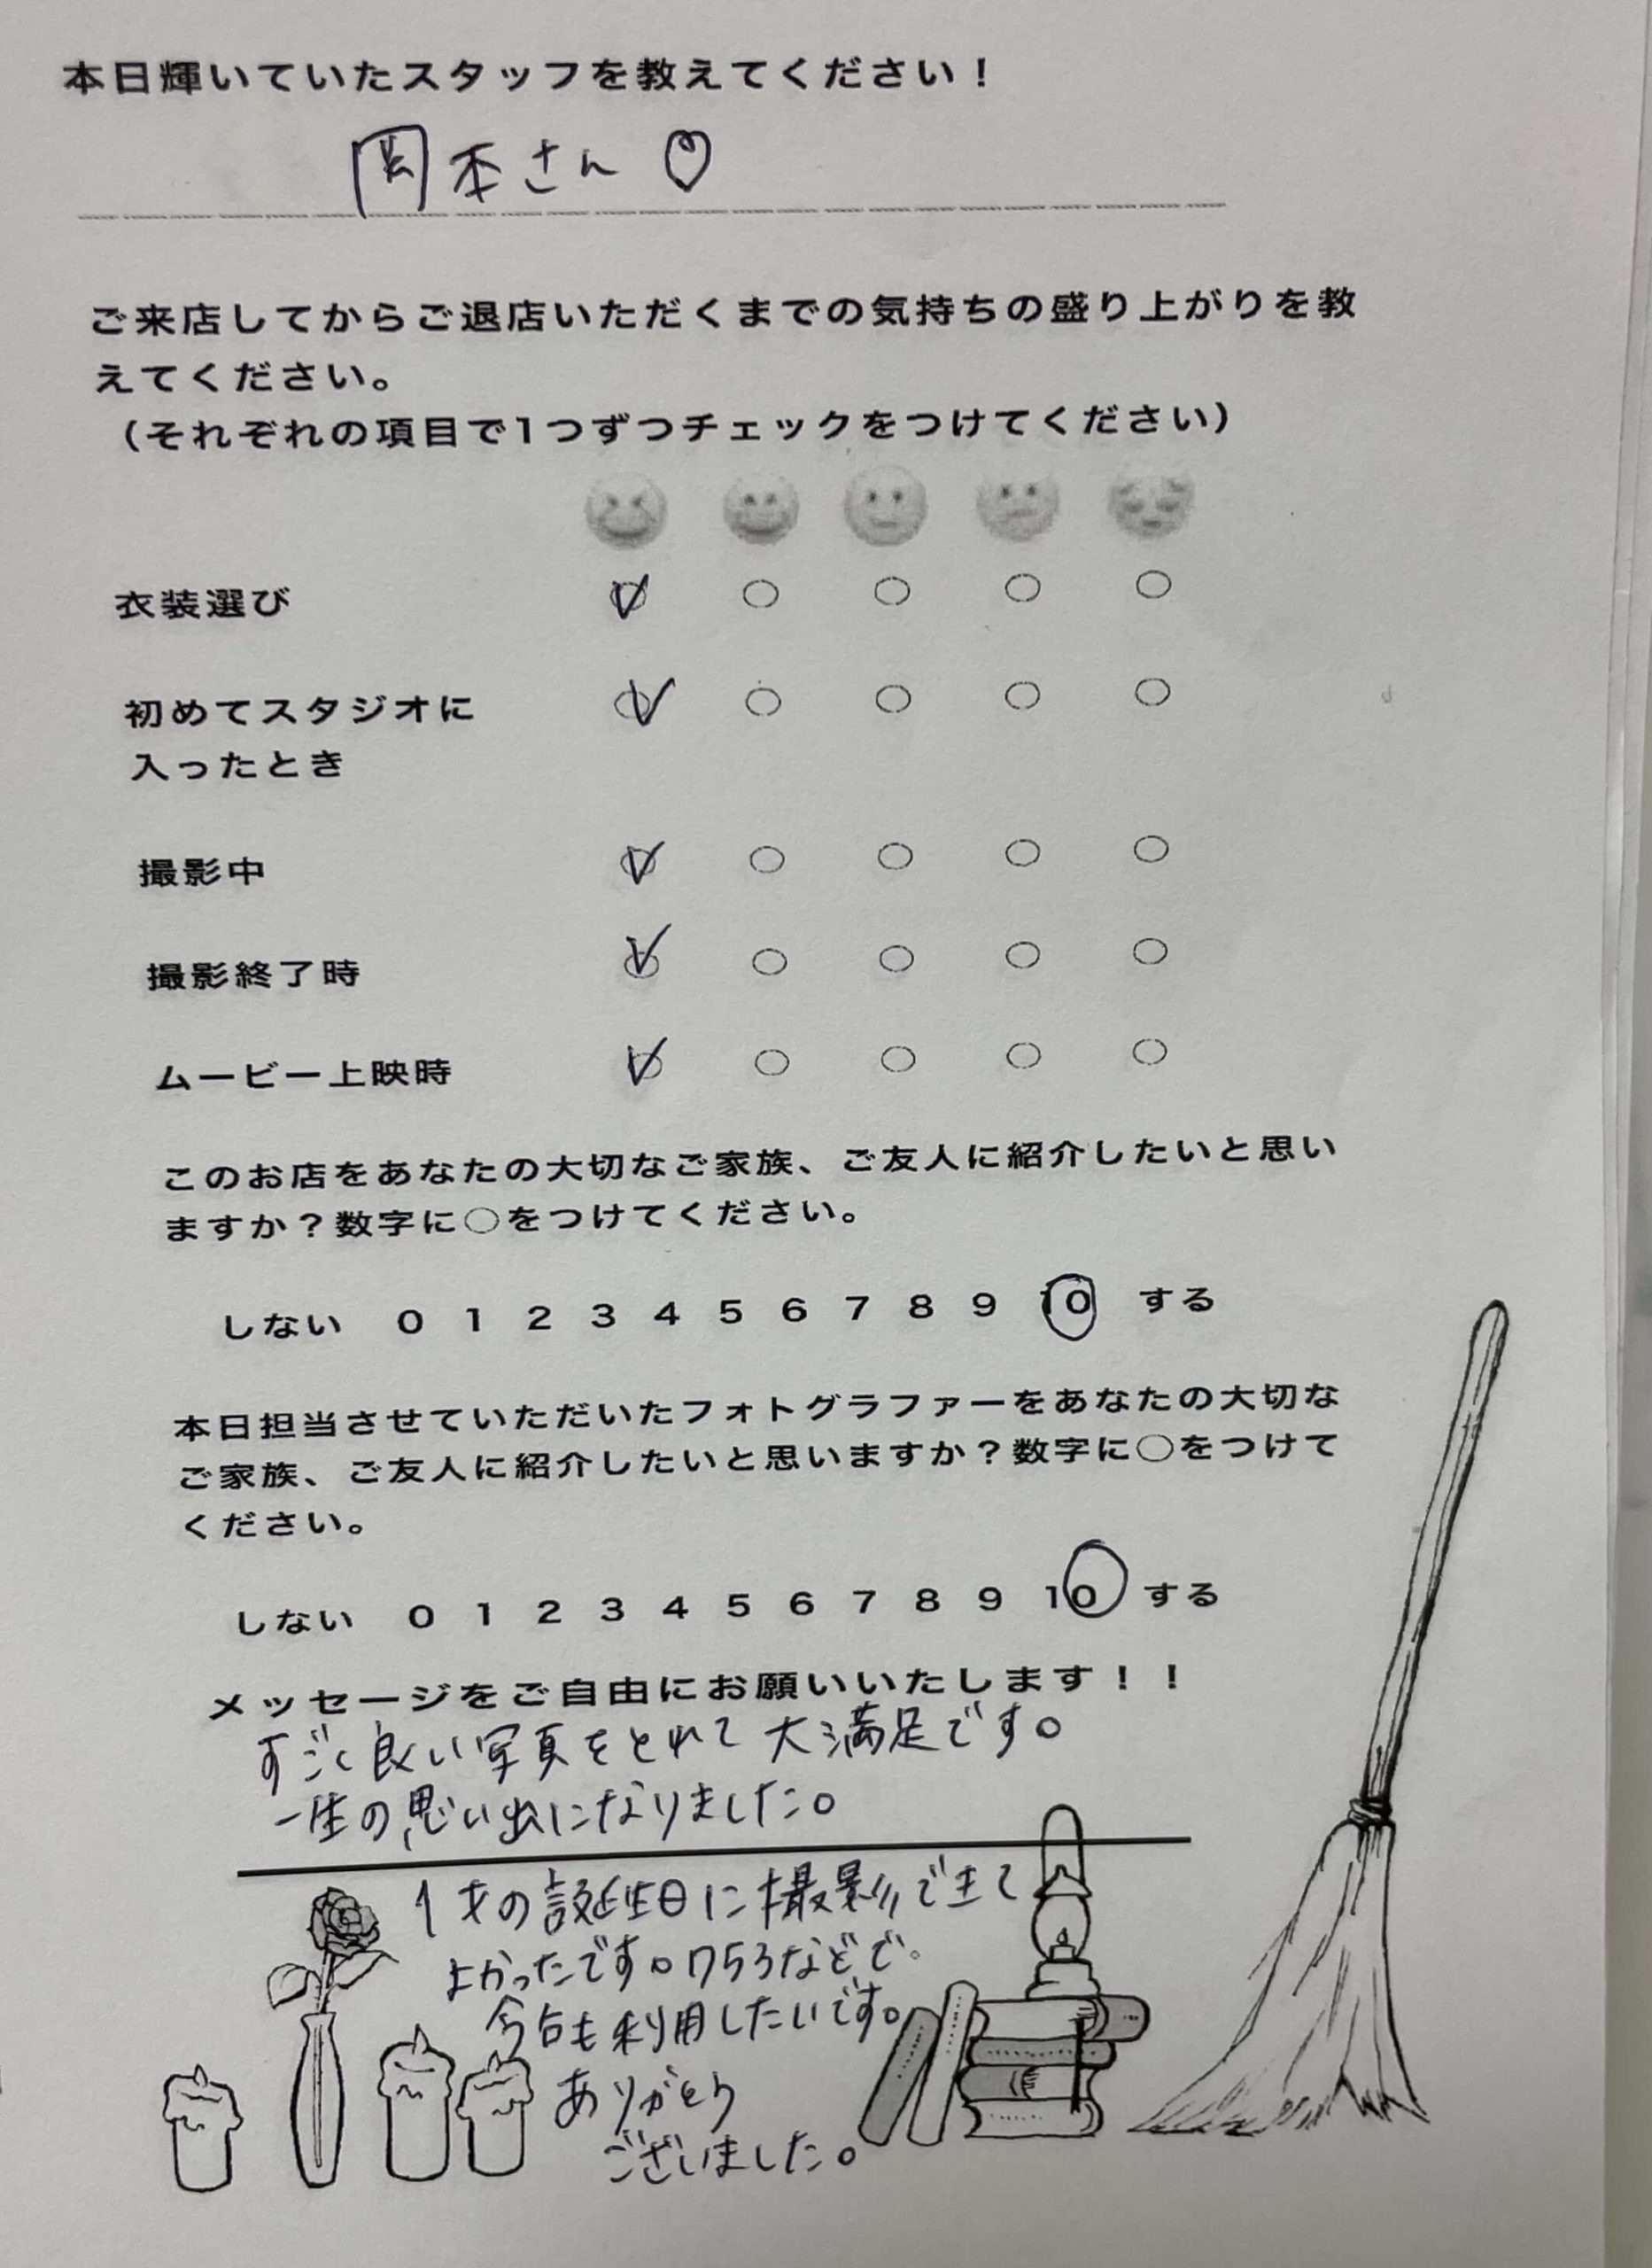 本日輝いていたスタッフを教えてください！
岡本さん♡
ご来店してからご退店いただくまでの気持ちの盛り上がりを教
えてください。
（それぞれの項目で1つずつチェックをつけてください）
衣装選び
初めてスタジオに
入ったとき
撮影中
撮影終了時
ムービー上映時
このお店をあなたの大切なご家族、ご友人に紹介したいと思い
ますか？数字に○をつけてください。
しない 0 1 2 3 4 5 6 7 8 9 10 する
本日担当させていただいたフォトグラファーをあなたの大切な
ご家族、ご友人に紹介したいと思いますか？数字に○をつけて
ください。
しない 0 1 2 3 4 5 6 7 8 9 10 する
メッセージをご自由にお願いいたします！！
すごく良い写真をとれて大満足です。
一生の思い出になりました。
1才の誕生日に撮影できて
よかったです。753などで。
今後も利用したいです。
ありがとう
ございました。